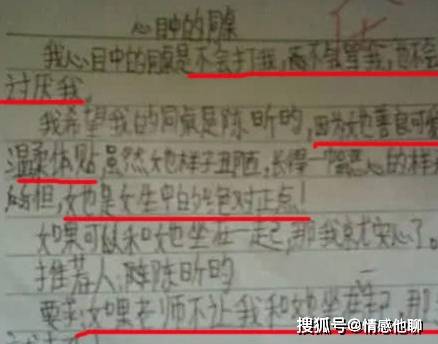 心目中的同桌
我心目中的同桌是不会打我,而不会骂我,也不会
讨厌我。
我希望我的同桌是陈昕昀,因为她善良可爱
温柔体贴,虽然她样子丑陋,长得一幅恶心的样
的但,她也是女生中的绝对正点!
如果可以和她坐在一起,那我就安心了。
推荐人 陈昕昀
要如果老师不让我和她坐在 那
搜狐号@情感他聊